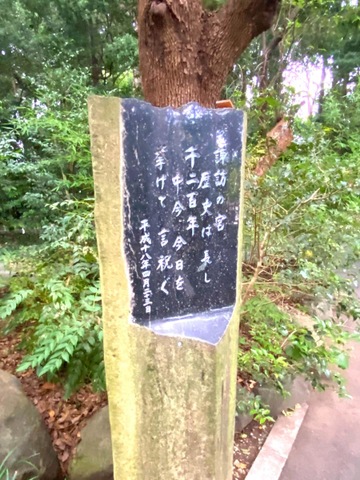 諏訪の宮
歴史は長し
千二百年
中今の今日を
挙げて言祝ぐ
平成十八年四月二十三日